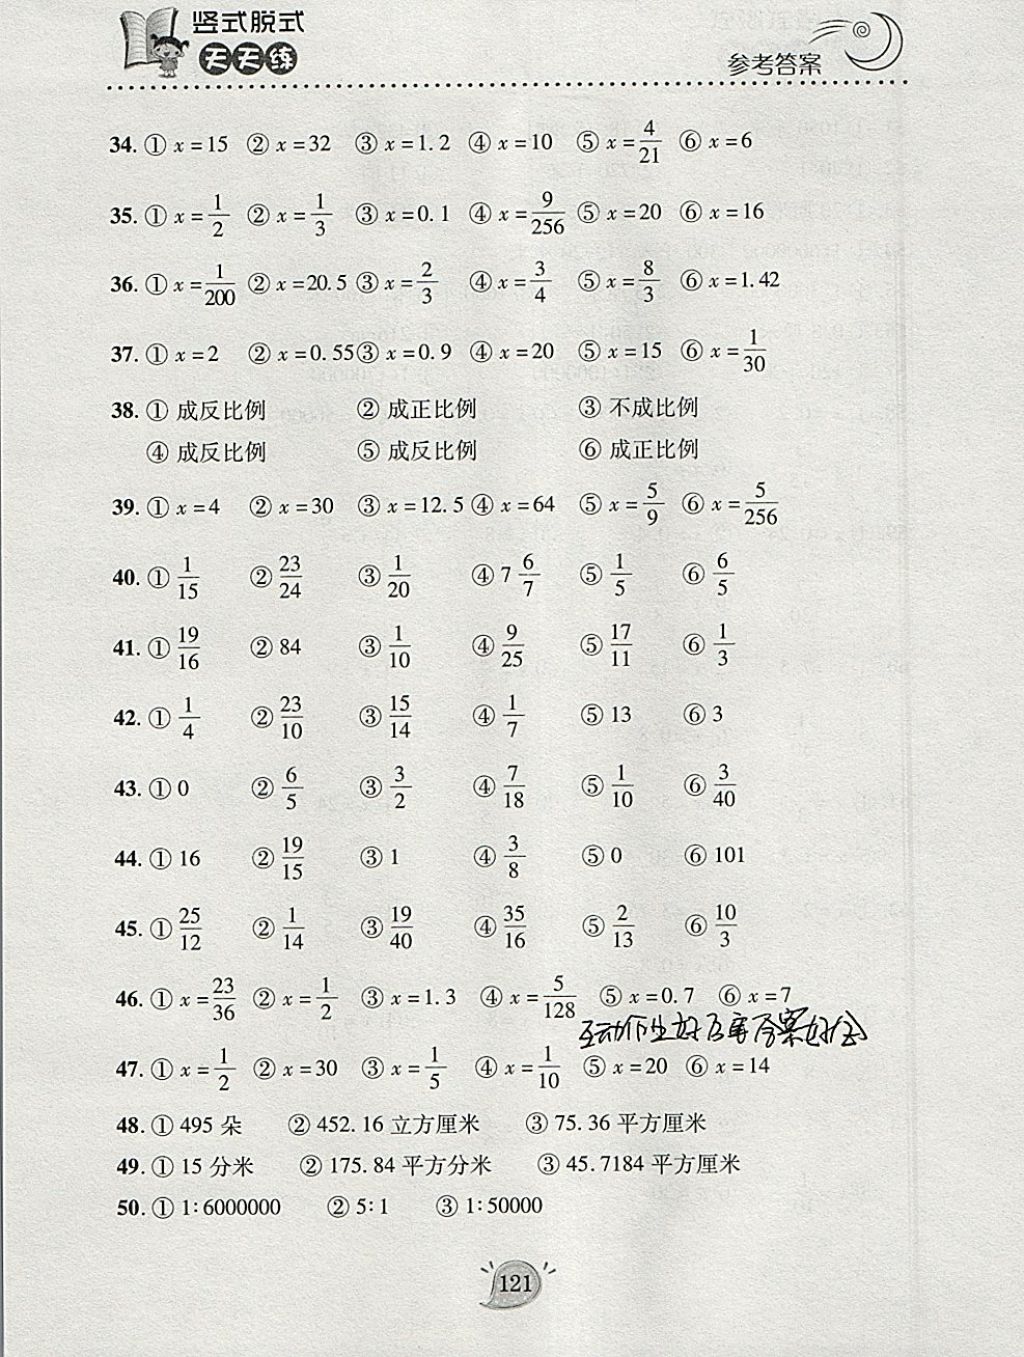 竖式脱式
天天练
参考答案
34. ① x=15 ② x=32 ③ x=1.2 ④ x=10 ⑤ x=4/21 ⑥ x=6
35. ① x=1/2 ② x=1/3 ③ x=0.1 ④ x=9/256 ⑤ x=20 ⑥ x=16
36. ① x=1/200 ② x=20.5 ③ x=2/3 ④ x=3/4 ⑤ x=8/3 ⑥ x=1.42
37. ① x=2 ② x=0.55 ③ x=0.9 ④ x=20 ⑤ x=15 ⑥ x=1/30
38. ① 成反比例 ② 成正比例 ③ 不成比例
④ 成反比例 ⑤ 成反比例 ⑥ 成正比例
39. ① x=4 ② x=30 ③ x=12.5 ④ x=64 ⑤ x=5/9 ⑥ x=5/256
40. ① 1/15 ② 23/24 ③ 1/20 ④ 7 6/7 ⑤ 1/5 ⑥ 6/5
41. ① 19/16 ② 84 ③ 1/10 ④ 9/25 ⑤ 17/11 ⑥ 1/3
42. ① 1/4 ② 23/10 ③ 15/14 ④ 1/7 ⑤ 13 ⑥ 3
43. ① 0 ② 6/5 ③ 3/2 ④ 7/18 ⑤ 1/10 ⑥ 3/40
44. ① 16 ② 19/15 ③ 1 ④ 3/8 ⑤ 0 ⑥ 101
45. ① 25/12 ② 1/14 ③ 19/40 ④ 35/16 ⑤ 2/13 ⑥ 10/3
46. ① x=23/36 ② x=1/2 ③ x=1.3 ④ x=5/128 ⑤ x=0.7 ⑥ x=7
47. ① x=1/2 ② x=30 ③ x=1/5 ④ x=1/10 ⑤ x=20 ⑥ x=14
48. ① 495 朵 ② 452.16 立方厘米 ③ 75.36 平方厘米
49. ① 15 分米 ② 175.84 平方分米 ③ 45.7184 平方厘米
50. ① 1∶6000000 ② 5∶1 ③ 1∶50000
121